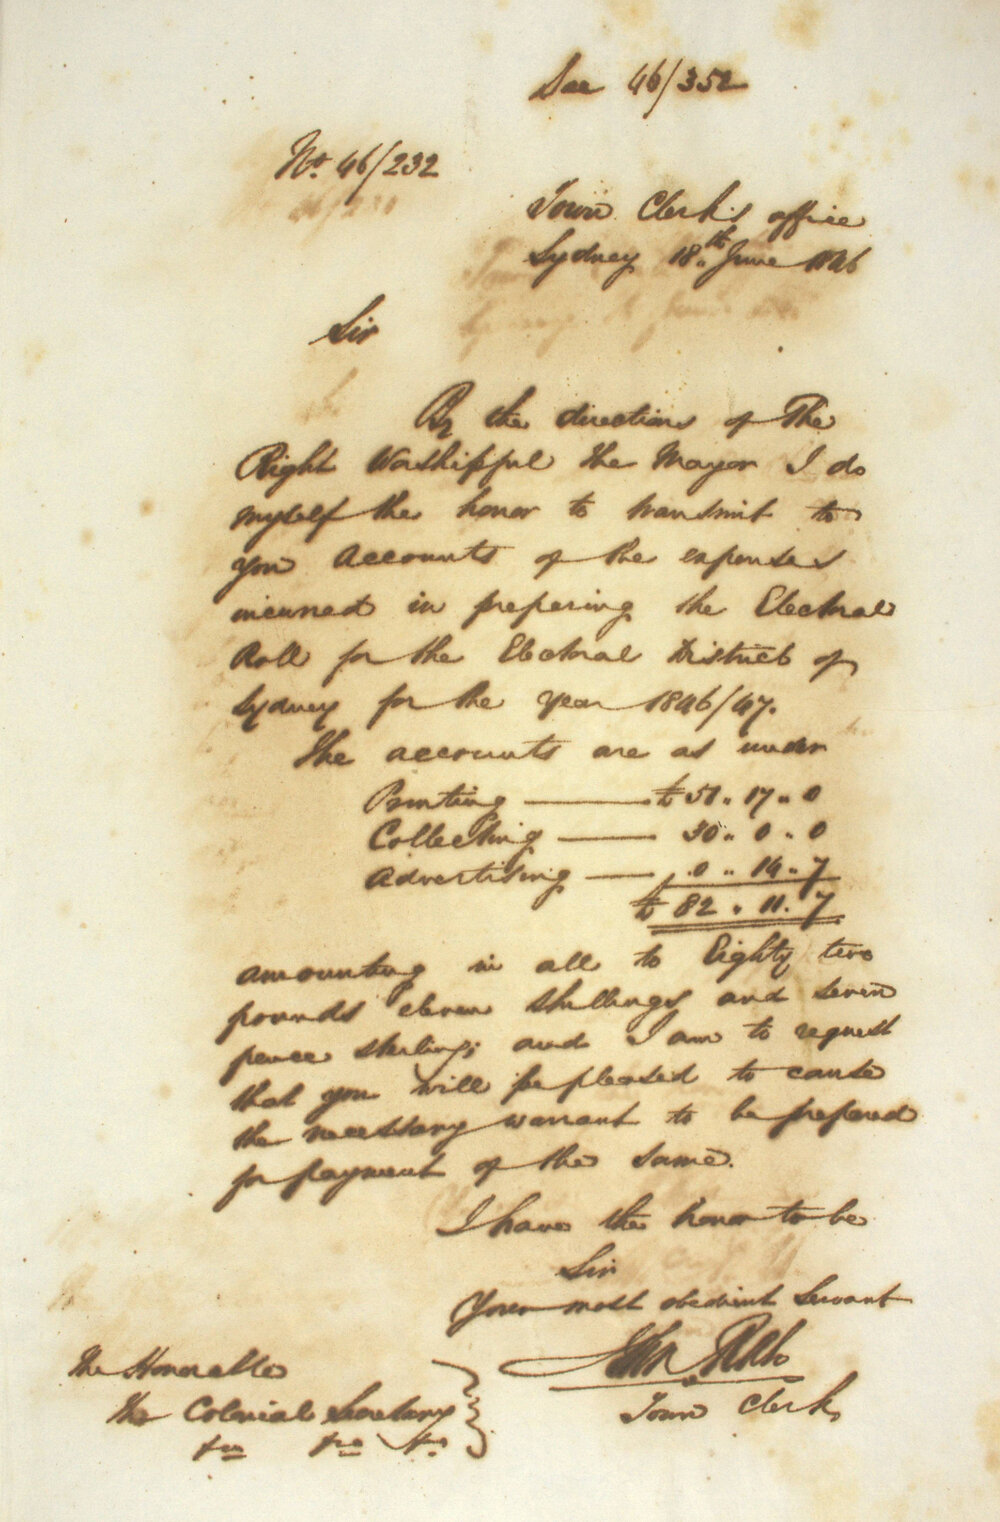 See 46/352
No. 46/232
Town Clerk's office
Sydney 18th June 1846
Sir
By the directions of The
Right Worshipful the Mayor I do
myself the honor to transmit to
you accounts of the expenses
incurred in prepering the Electoral
Roll for the Electoral District of
Sydney for the year 1846/47.
The accounts are as under
Printing — £ 51 .. 17 .. 0
Collecting — 30 .. 0 .. 0
Advertising — .0 .. 14 .. 7
£ 82 . 11 . 7
amounting in all to Eighty two
pounds eleven shillings and seven
pence sterling; and I am to request
that you will be pleased to cause
the necessary warrant to be prepared
for payment of the same.
I have the honor to be
Sir
Your most obedient Servant
John
Town Clerk
The Honorable
The Colonial Secretary